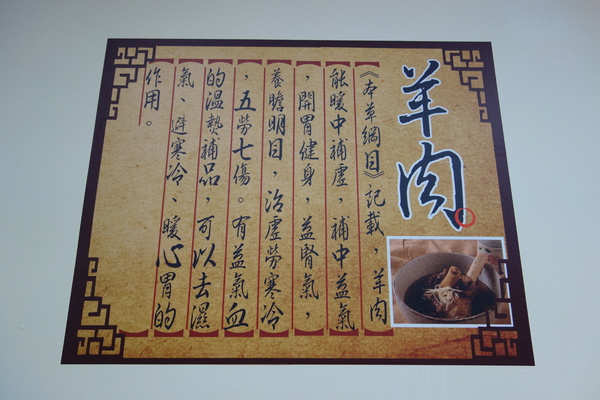 羊肉。
《本草綱目》記載，羊肉
能暖中補虛，補中益氣
，開胃健身，益腎氣，
養瞻明目，治虛勞寒冷
，五勞七傷。有益氣血
的溫熱補品，可以去濕
氣、避寒冷、暖心胃的
作用。